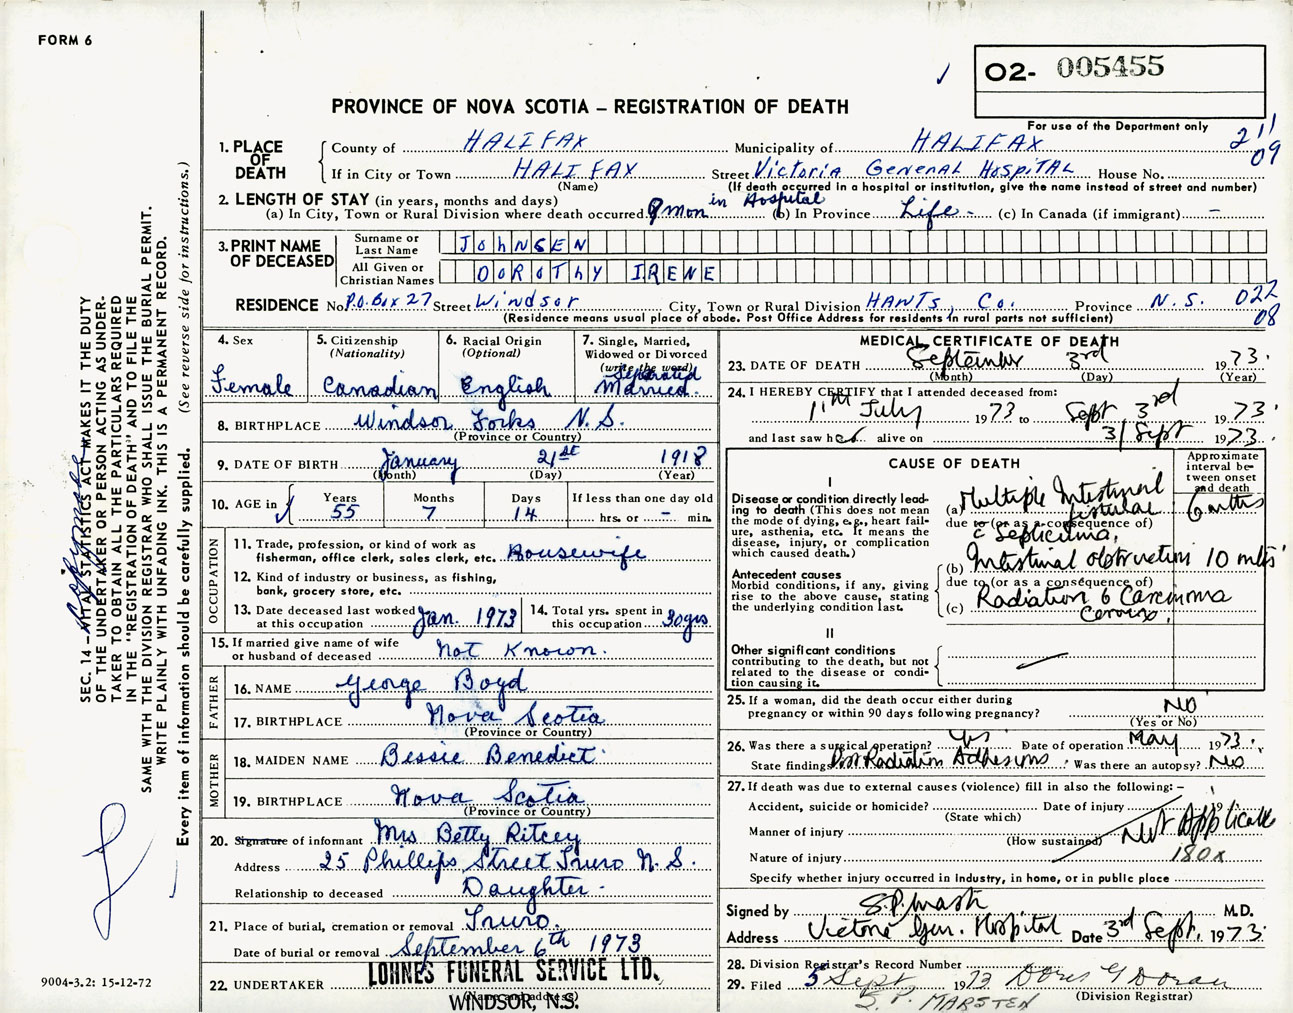 FORM 6
02- 005455
PROVINCE OF NOVA SCOTIA – REGISTRATION OF DEATH
For use of the Department only
211
09
1. PLACE OF DEATH
County of HALIFAX Municipality of HALIFAX
If in City or Town HALIFAX Street Victoria General Hospital House No.
(Name) (If death occurred in a hospital or institution, give the name instead of street and number)
2. LENGTH OF STAY (in years, months and days)
(a) In City, Town or Rural Division where death occurred 9 mon in Hospital (b) In Province Life - (c) In Canada (if immigrant) -
3. PRINT NAME OF DECEASED
Surname or Last Name JOHNSEN
All Given or Christian Names DOROTHY IRENE
RESIDENCE No P.O. Box 27 Street Windsor City, Town or Rural Division HANTS, Co. Province N.S. 022
08
(Residence means usual place of abode. Post Office Address for residents in rural parts not sufficient)
4. Sex
Female
5. Citizenship (Nationality)
Canadian
6. Racial Origin (Optional)
English
7. Single, Married, Widowed or Divorced (write the word)
Separated
Married.
8. BIRTHPLACE Windsor Forks N.S.
(Province or Country)
9. DATE OF BIRTH January 21st 1918
(Month) (Day) (Year)
10. AGE in
Years 55
Months 7
Days 14
If less than one day old
hrs. or - min.
OCCUPATION
11. Trade, profession, or kind of work as fisherman, office clerk, sales clerk, etc. Housewife
12. Kind of industry or business, as fishing, bank, grocery store, etc.
13. Date deceased last worked at this occupation Jan. 1973
14. Total yrs. spent in this occupation 30 yrs
15. If married give name of wife or husband of deceased Not Known.
FATHER
16. NAME George Boyd
17. BIRTHPLACE Nova Scotia
(Province or Country)
MOTHER
18. MAIDEN NAME Bessie Benedict
19. BIRTHPLACE Nova Scotia
(Province or Country)
20. Signature of informant Mrs Betty Ritcey
Address 25 Phillips Street Truro N.S.
Relationship to deceased Daughter -
21. Place of burial, cremation or removal Truro.
Date of burial or removal September 6th 1973
22. UNDERTAKER LOHNES FUNERAL SERVICE LTD.
(Name and address)
WINDSOR, N.S.
MEDICAL CERTIFICATE OF DEATH
23. DATE OF DEATH September 3rd 1973.
(Month) (Day) (Year)
24. I HEREBY CERTIFY that I attended deceased from:
11th July 1973 to Sept 3rd 1973.
and last saw her alive on 3/Sept 1973.
CAUSE OF DEATH
Approximate interval between onset and death
I
Disease or condition directly leading to death (This does not mean the mode of dying, e.g., heart failure, asthenia, etc. It means the disease, injury, or complication which caused death.)
(a) Multiple Intestinal fistulae 6 mths
due to (or as a consequence of)
c Septicemia.
Antecedent causes
Morbid conditions, if any, giving rise to the above cause, stating the underlying condition last.
(b) Intestinal obstruction 10 mths
due to (or as a consequence of)
(c) Radiation 6 Carcinoma Cervix.
II
Other significant conditions contributing to the death, but not related to the disease or condition causing it.
25. If a woman, did the death occur either during pregnancy or within 90 days following pregnancy? NO
(Yes or No)
26. Was there a surgical operation? Yes Date of operation May 1973.
State findings Post Radiation Adhesions. Was there an autopsy? No
27. If death was due to external causes (violence) fill in also the following:-
Accident, suicide or homicide? Date of injury
(State which)
Manner of injury
(How sustained)
Not Applicable
Nature of injury 180x
Specify whether injury occurred in industry, in home, or in public place
Signed by M.D.
Address Victoria Gen. Hospital Date 3rd Sept. 1973.
28. Division Registrar's Record Number
29. Filed 5 Sept 1973 Doris G Doran
(Division Registrar)
S. P. MARSTEN
SEC. 14 – VITAL STATISTICS ACT MAKES IT THE DUTY
OF THE UNDERTAKER OR PERSON ACTING AS UNDER-
TAKER TO OBTAIN ALL THE PARTICULARS REQUIRED
IN THE "REGISTRATION OF DEATH" AND TO FILE THE
SAME WITH THE DIVISION REGISTRAR WHO SHALL ISSUE THE BURIAL PERMIT.
WRITE PLAINLY WITH UNFADING INK. THIS IS A PERMANENT RECORD.
Every item of information should be carefully supplied. (See reverse side for instructions.)
9004-3.2: 15-12-72